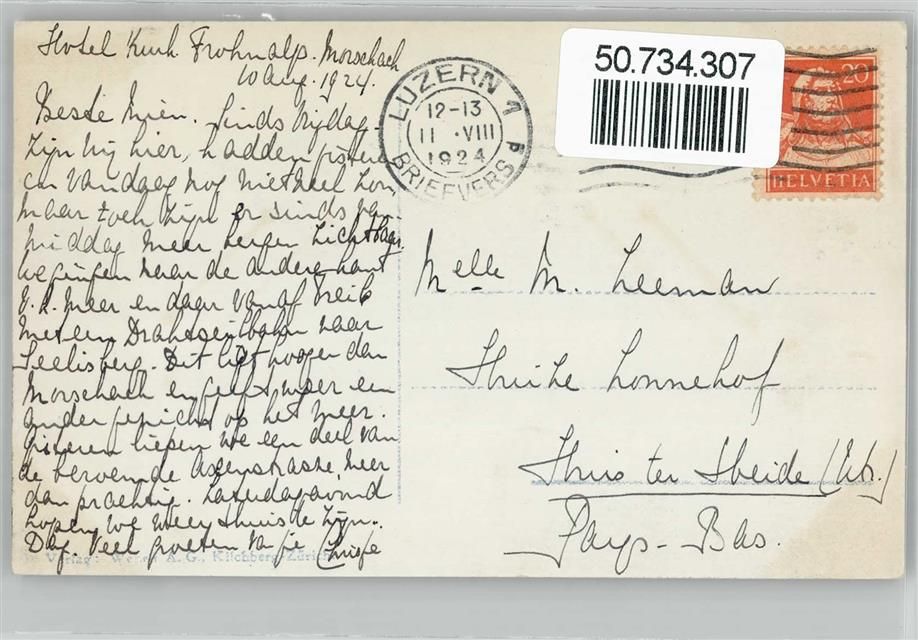 Hotel Kurh. Frohnalp. Morschach
10 Aug. 1924.
Beste Mien. Sinds Vrijdag
zijn wij hier, hadden gisteren
en vandaag nog niet veel zon,
maar toch zijn er sinds van-
middag meer bergen zichtbaar.
We gingen naar de andere kant
v.h. meer en daar vanaf Treib
met een Drahtseilbahn naar
Seelisberg. Dit ligt hooger dan
Morschach en geeft weer een
ander gezicht op het meer.
Gisteren liepen we een deel van
de beroemde Axenstrasse weer
dan prachtig. Zaterdagavond
hopen we weer thuis te zijn.
Dag. Veel groeten van je
Verlag: A. G., Kilchberg-Zürich
LUZERN 1
12-13
11 · VIII
1924
BRIEFVERS
50.734.307
20
HELVETIA
Melle M. Leeman
Huize Lonnehof
Huis ter Heide (Ut.)
Pays-Bas.